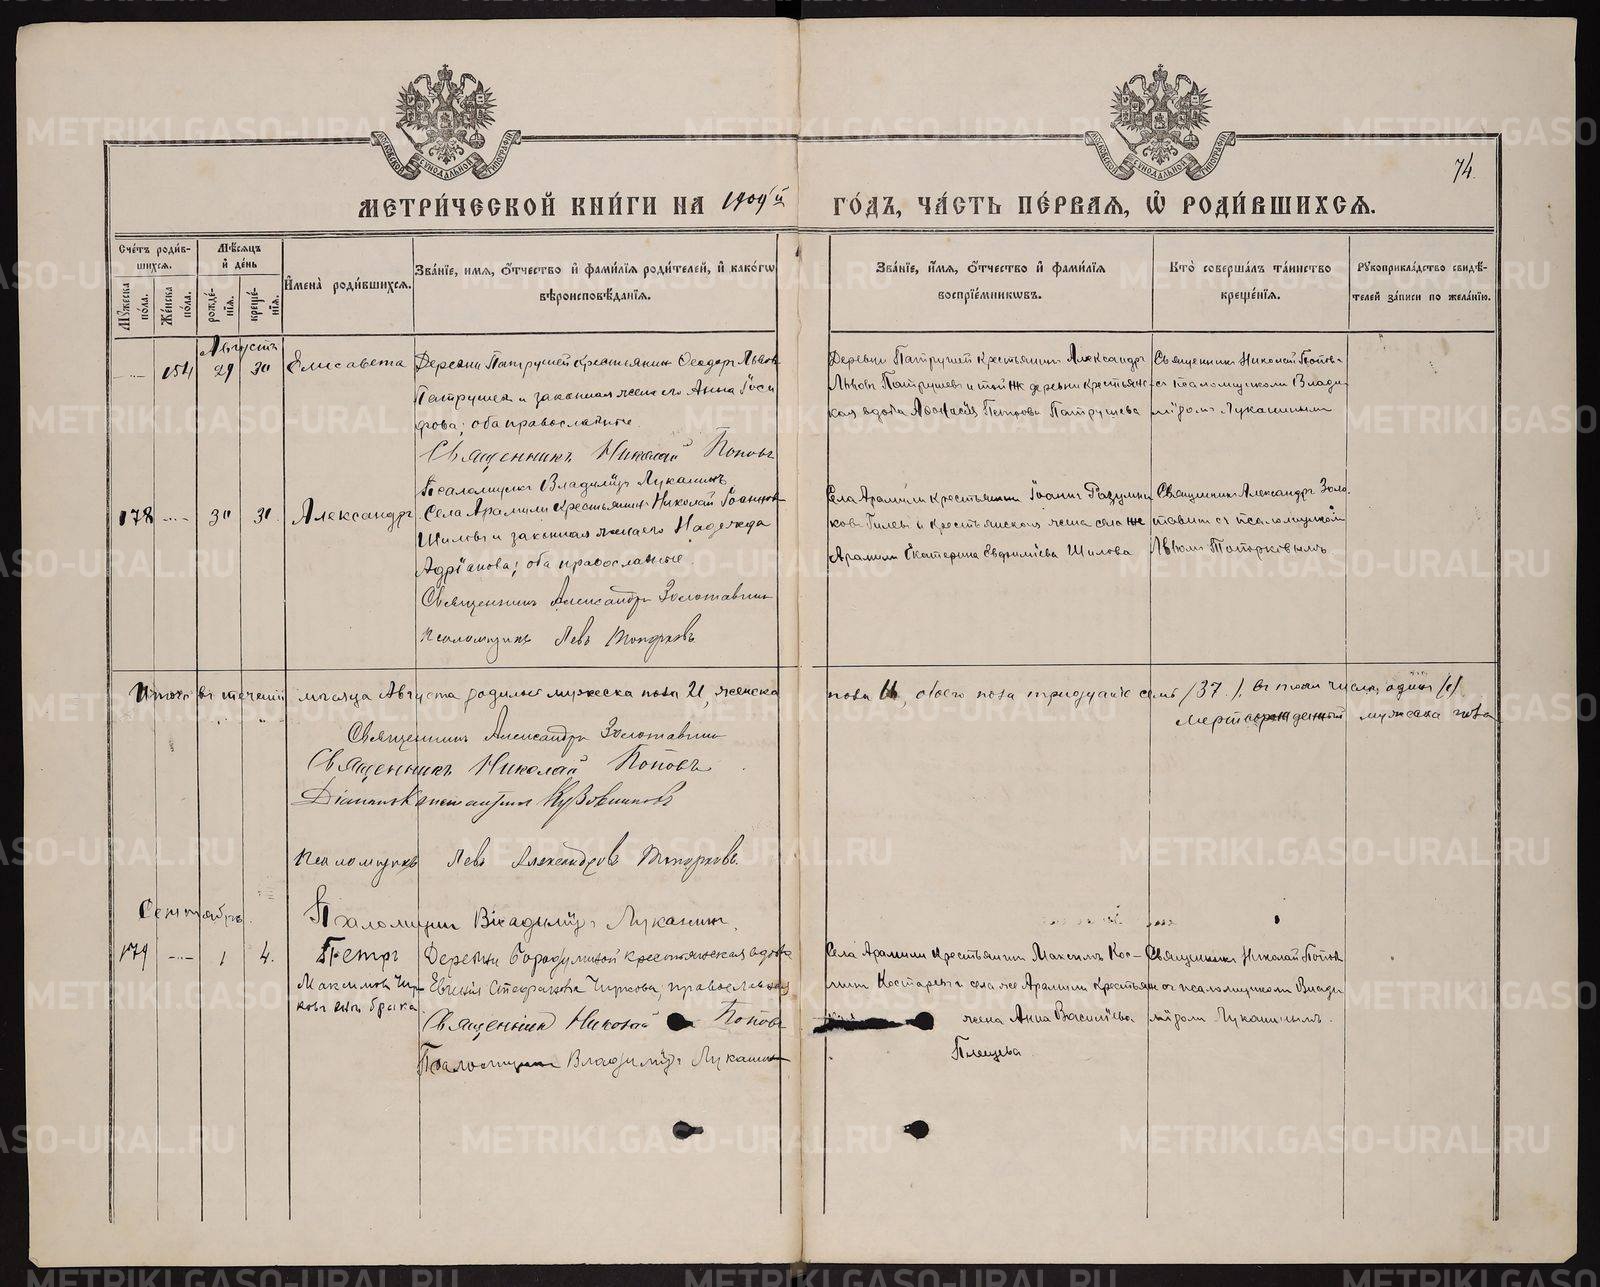 74.
МЕТРИ́ЧЕСКОЙ КНИ́ГИ НА 1909й ГО́ДЪ, ЧА́СТЬ ПЕ́РВАЯ, Ѡ҆ РОДИ́ВШИХСЯ.
Сче́тъ роди́в-
шихся.
Мꙋ́жеска по́ла.
Же́нска по́ла.
Мѣ́сяцъ
и҆ де́нь
рожде́-
нїѧ.
креще́-
нїѧ.
И҆мена̀ роди́вшихся.
Зва́нїе, имя, ѻ҆́тчество и҆ фами́лїѧ роди́телей, и҆ како́гѡ
вѣроисповѣ́данїѧ.
Зва́нїе, и҆́мя, ѻ҆́тчество и҆ фами́лїѧ
воспрїе́мникѡвъ.
Кто̀ соверша́лъ та́инство
креще́нїѧ.
Рꙋкоприкла́дство свидѣ́-
телей за́писи по жела́нїю.
Августъ
154 29 30
Елисавета
Деревни Патрушей крестьянинъ Ѳеодоръ Львовъ
Патрушев и законная жена его Анна Іоси
фова; оба православные.
Священникъ Николай Поповъ
Псаломщикъ Владиміръ Луканинъ
Деревни Патрушей крестьянинъ Александръ
Львовъ Патрушевъ и той же деревни крестьянс-
кая вдова Аѳанасія Петрова Патрушева
Священникъ Николай Поповъ
съ псаломщикомъ Влади-
міромъ Луканинымъ
178 30 31.
Александръ
Села Арамили крестьянинъ Николай Іоанновъ
Шиловъ и законная жена его Надежда
Адріанова; оба православные.
Священникъ Александръ Золотавинъ
Псаломщикъ Левъ Топорковъ
Села Арамили крестьянинъ Іоаннъ
Гилевъ и крестьянская жена села же
Арамили Екатерина Евфиміева Шилова
Священникъ Александръ Золо-
тавинъ съ псаломщикомъ
Львомъ Топорковымъ
Итого въ теченіи мѣсяца Августа родилось мужеска пола 21, женска пола 16, обоего пола тридцать семь /37./, въ томъ числѣ одинъ (1)
мертворожденный мужеска пола
Священникъ Александръ Золотавинъ
Священникъ Николай Поповъ
Діаконъ Константинъ Кузовниковъ
Псаломщикъ Левъ Александровъ Топорковъ
Псаломщикъ Владиміръ Луканинъ.
Сентябрь.
179 1 4.
Петръ
Максимовъ Чир-
ковъ внѣ брака.
Деревни Бородулиной крестьянская вдова
Евгенія Стефанова Чиркова, православная
Священникъ Николай Поповъ
Псаломщикъ Владиміръ Луканинъ
Села Арамили крестьянинъ Максимъ Кос-
минъ Костаревъ и села же Арамили крестьян
жена Анна Васильева
Плещева
Священникъ Николай Поповъ
съ псаломщикомъ Влади
міромъ Луканинымъ.
METRIKI.GASO-URAL.RU